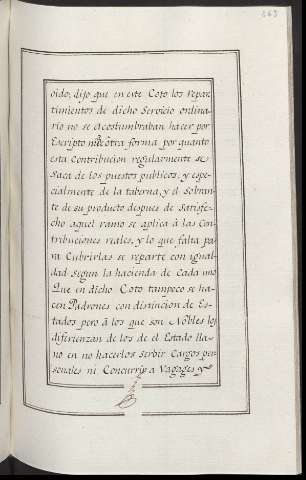 oido, dijo que en este Coto los repar
timientos de dicho Servicio ordina
rio no se acostumbraban hacer por
Escripto ni de otra forma por quanto
esta Contribucion regularmente se
saca de los puestos publicos, y espe
cialmente de la taberna, y el Sobran
te de su producto despues de Satisfe
cho aquel ramo se aplica â las Con
tribuciones reales, y lo que falta pa
ra Cubrirlas se reparte con igual
dad segun la hacienda de Cada uno
Que en dicho Coto tampoco se ha
cen Padrones con distincion de Es
tados pero â los que son Nobles los
diferienzan de los de el Estado lla
no en no hacerlos Serbir Cargos per
sonales ni Concurrir a Vagages y